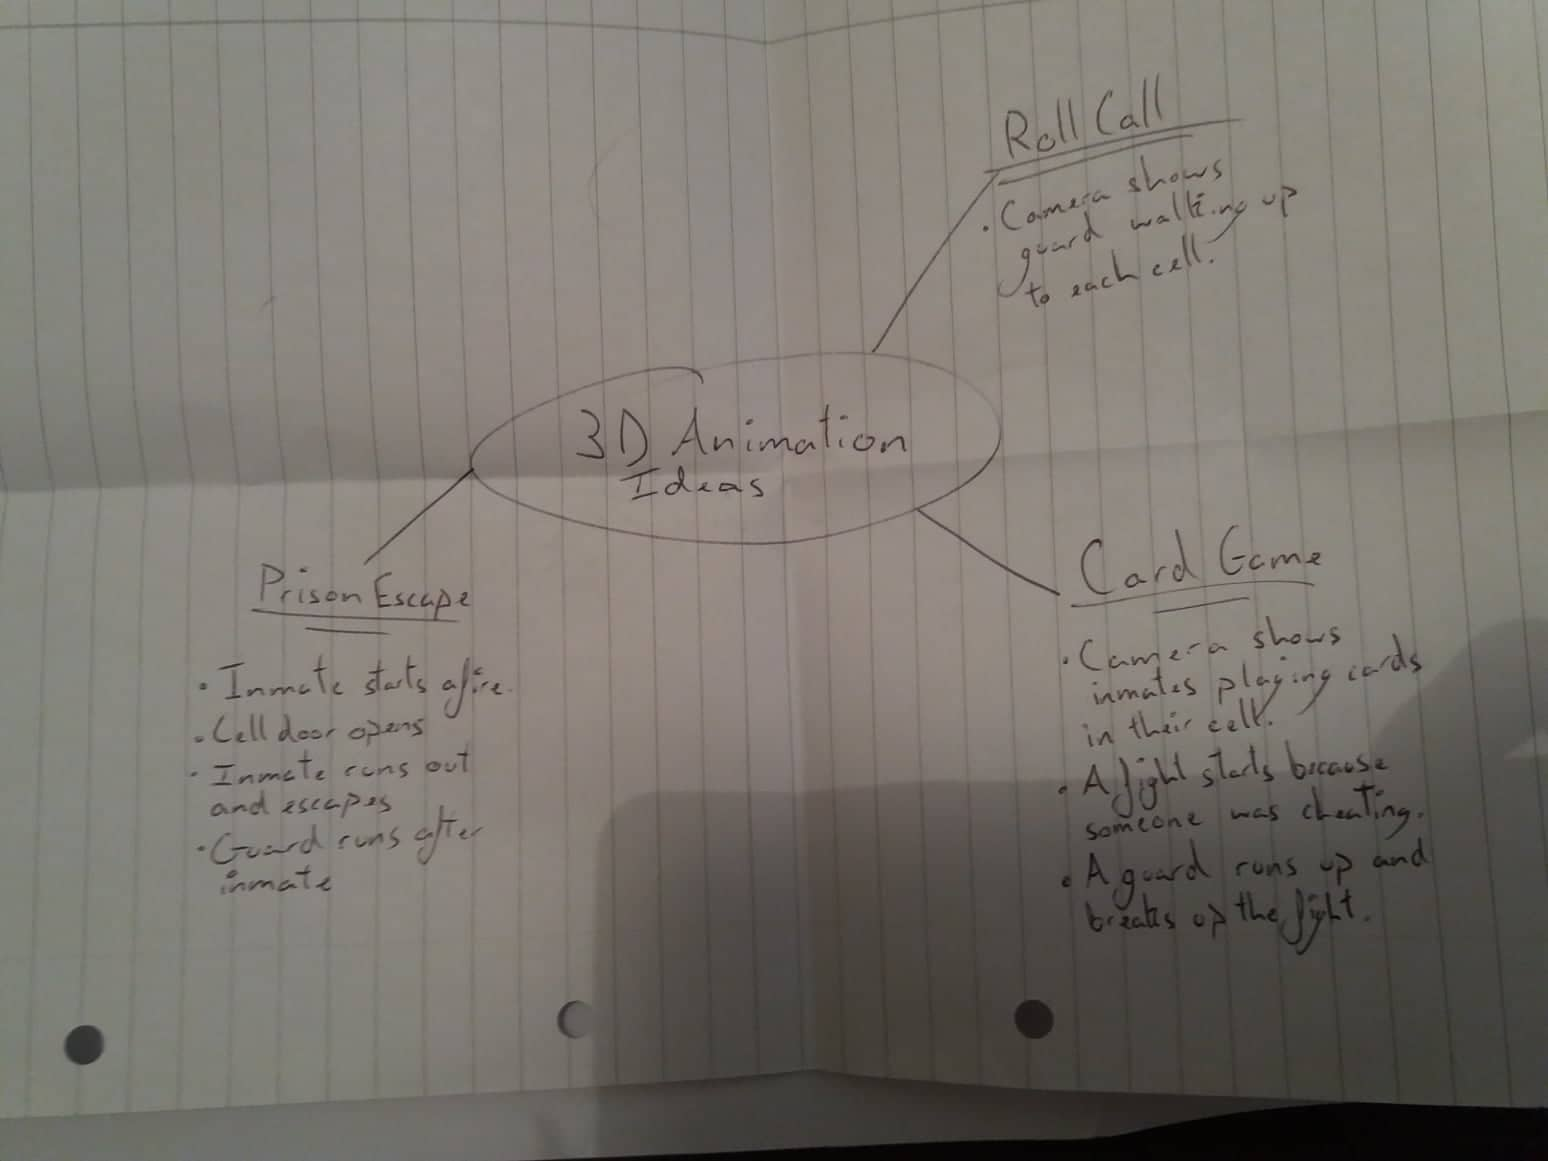 3D Animation
Ideas
Roll Call
• Camera shows
guard walking up
to each cell.
Prison Escape
• Inmate starts a fire.
• Cell door opens
• Inmate runs out
and escapes
• Guard runs after
inmate
Card Game
• Camera shows
inmates playing cards
in their cell.
• A fight starts because
someone was cheating.
• A guard runs up and
breaks up the fight.